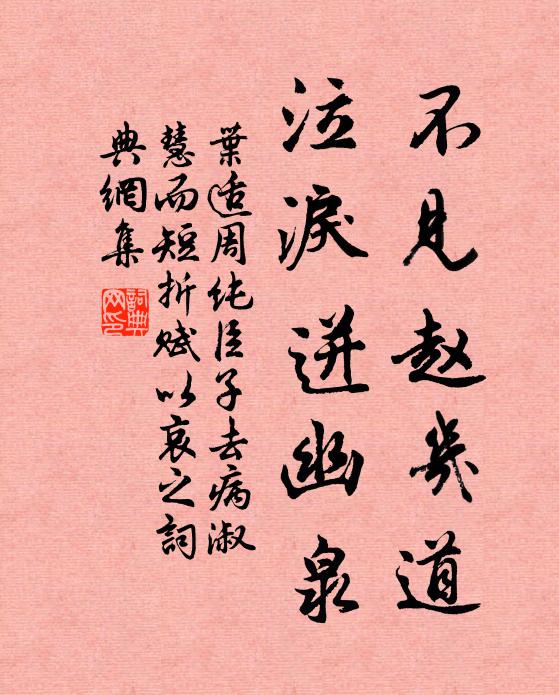 不見趙幾道
泣淚迸幽泉
葉適周純臣子去病淑
慧而短折賦以哀之詞
典網集
詞典网印